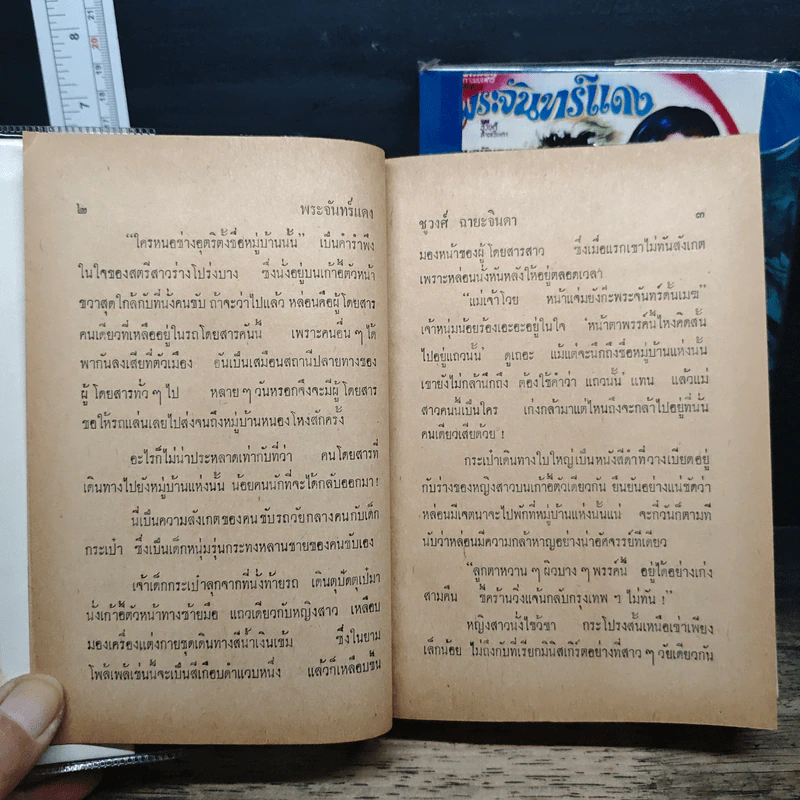 8
21
20
19
18
7
พระจันทร์แดง
๒ พระจันทร์แดง
"ใครหนอช่างอุตริตั้งชื่อหมู่บ้านนั้น" เป็นคำรำพึง
ในใจของสตรีสาวร่างโปร่งบาง ซึ่งนั่งอยู่บนเก้าอี้ตัวหน้า
ขวาสุดใกล้กับที่นั่งคนขับ ถ้าจะว่าไปแล้ว หล่อนคือผู้โดยสาร
คนเดียวที่เหลืออยู่ในรถโดยสารคันนี้ เพราะคนอื่น ๆ ได้
พากันลงเสียที่ตัวเมือง อันเป็นเสมือนสถานีปลายทางของ
ผู้โดยสารทั่ว ๆ ไป หลาย ๆ วันหรอกจึงจะมีผู้โดยสาร
ขอให้รถแล่นเลยไปส่งจนถึงหมู่บ้านหนองโหงสักครั้ง
อะไรก็ไม่น่าประหลาดเท่ากับที่ว่า คนโดยสารที่
เดินทางไปยังหมู่บ้านแห่งนั้น น้อยคนนักที่จะได้กลับออกมา!
นี่เป็นความสังเกตของคนขับรถวัยกลางคนกับเด็ก
กระเป๋า ซึ่งเป็นเด็กหนุ่มรุ่นกระทงหลานชายของคนขับเอง
เจ้าเด็กกระเป๋าลุกจากที่นั่งท้ายรถ เดินตุปัดตุเป๋มา
นั่งเก้าอี้ตัวหน้าทางซ้ายมือ แถวเดียวกับหญิงสาว เหลือบ
มองเครื่องแต่งกายชุดเดินทางสีน้ำเงินเข้ม ซึ่งในยาม
โพล้เพล้เช่นนี้จะเป็นสีเกือบดำแวบหนึ่ง แล้วก็เหลือบขึ้น
ชูวงศ์ ฉายะจินดา ๓
มองหน้าของผู้โดยสารสาว ซึ่งเมื่อแรกเขาไม่ทันสังเกต
เพราะหล่อนนั่งหันหลังให้อยู่ตลอดเวลา
"แม่เจ้าโวย หน้าแจ่มยังกะพระจันทร์ดั้นเมฆ"
เจ้าหนุ่มน้อยร้องเอะอะอยู่ในใจ 'หน้าตาพรรค์นี้ไหงคิดสั้น
ไปอยู่แถวนั้น' ดูเถอะ แม้แต่จะนึกถึงชื่อหมู่บ้านแห่งนั้น
เขายังไม่กล้านึกถึง ต้องใช้คำว่า แถวนั้น แทน แล้วแม่
สาวคนนี้เป็นใคร เก่งกล้ามาแต่ไหนถึงจะกล้าไปอยู่ที่นั่น
คนเดียวเสียด้วย !
กระเป๋าเดินทางใบใหญ่เป็นหนังสีดำที่วางเบียดอยู่
กับร่างของหญิงสาวบนเก้าอี้ตัวเดียวกัน ยืนยันอย่างแน่ชัดว่า
หล่อนมีเจตนาจะไปพักที่หมู่บ้านนั้นแน่ จะกี่วันก็ตามที
นับว่าหล่อนมีความกล้าหาญอย่างน่าอัศจรรย์ทีเดียว
"ลูกตาหวาน ๆ ผิวบาง ๆ พรรค์นี้ อยู่ได้อย่างเก่ง
สามคืน ขี้คร้านวิ่งแจ้นกลับกรุงเทพ ฯ ไม่ทัน !"
หญิงสาวนั่งไขว้ขา กระโปรงสั้นเหนือเข่าเพียง
เล็กน้อย ไม่ถึงกับที่เรียกมินิสเกิร์ตอย่างที่สาว ๆ วัยเดียวกัน